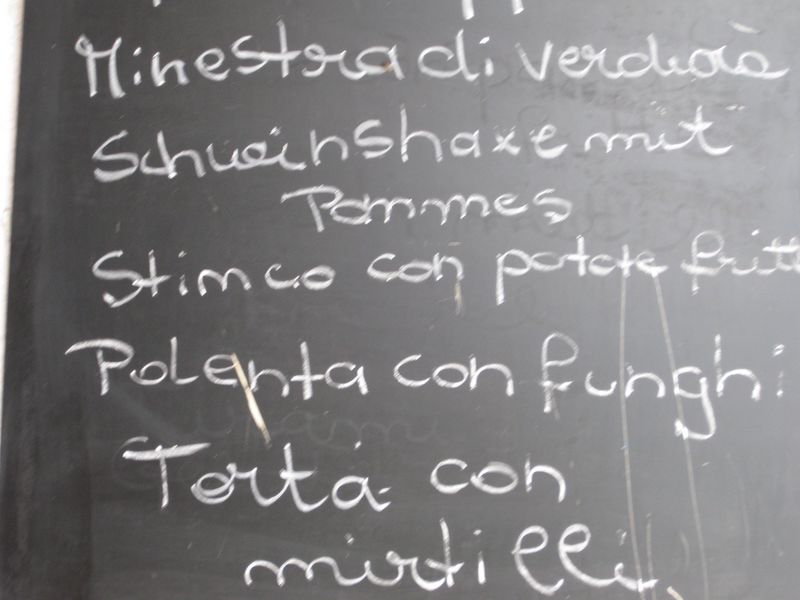 Minestra di verdura
Schweinshaxe mit
Pommes
Stinco con patate fritt
Polenta con funghi
Torta con
mirtilli